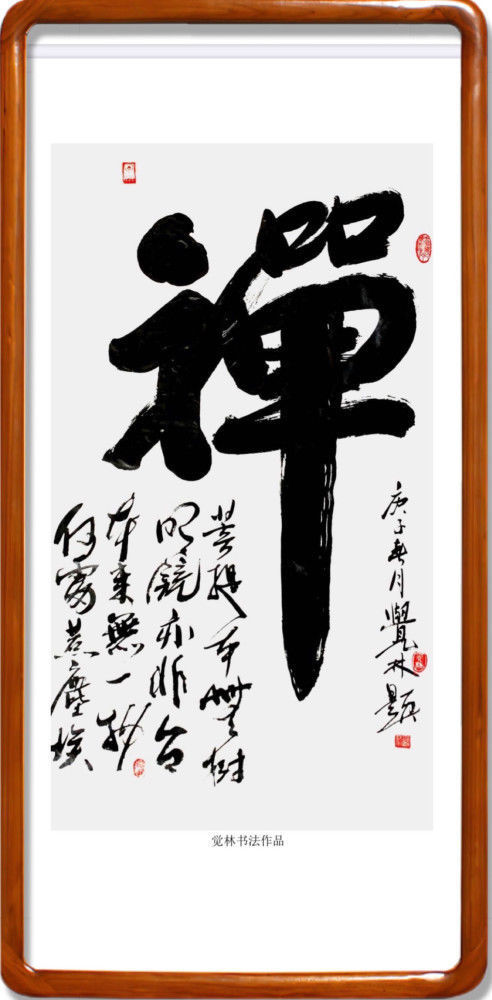 禪
庚子春月覺林題
菩提本無樹
明鏡亦非台
本来無一物
何處惹塵埃
觉林书法作品